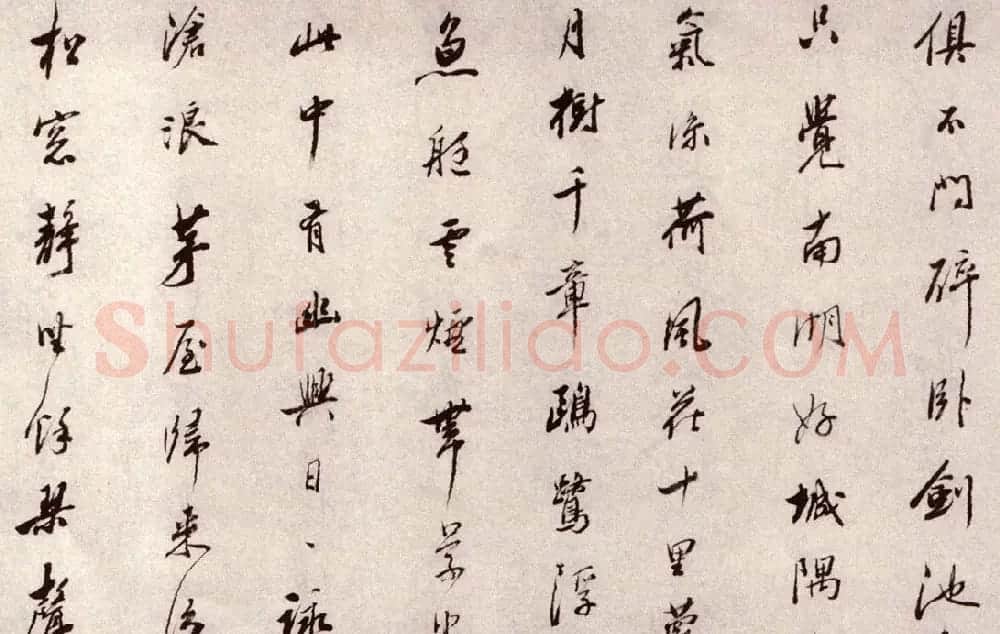 俱不問碎臥劍池
只覺南湖好城隅
氣涼荷風花十里
月樹千章鷗鷺浮
魚艇雲煙帶草
此中有幽興日、詠
滄浪茅屋歸來
松窓靜坐餘琹聲
Shufazilido.COM